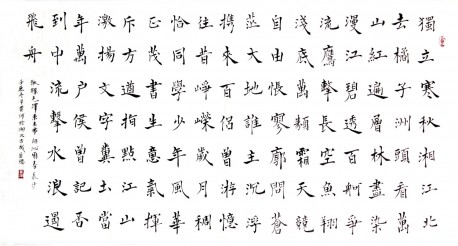 獨立寒秋湘江北
去橘子洲頭看萬
山紅遍層林盡染
漫江碧透百舸爭
流鷹擊長空魚翔
淺底萬類霜天競
自由悵寥廓問蒼
茫大地誰主沉浮
攜來百侶曾游憶
往昔崢嶸歲月稠
恰同學少年風華
正茂書生意氣揮
斥方遒指點江山
激揚文字糞土當
年萬戶侯曾記否
到中流擊水浪遏
飛舟
敬錄毛澤東主席詞沁園春長沙